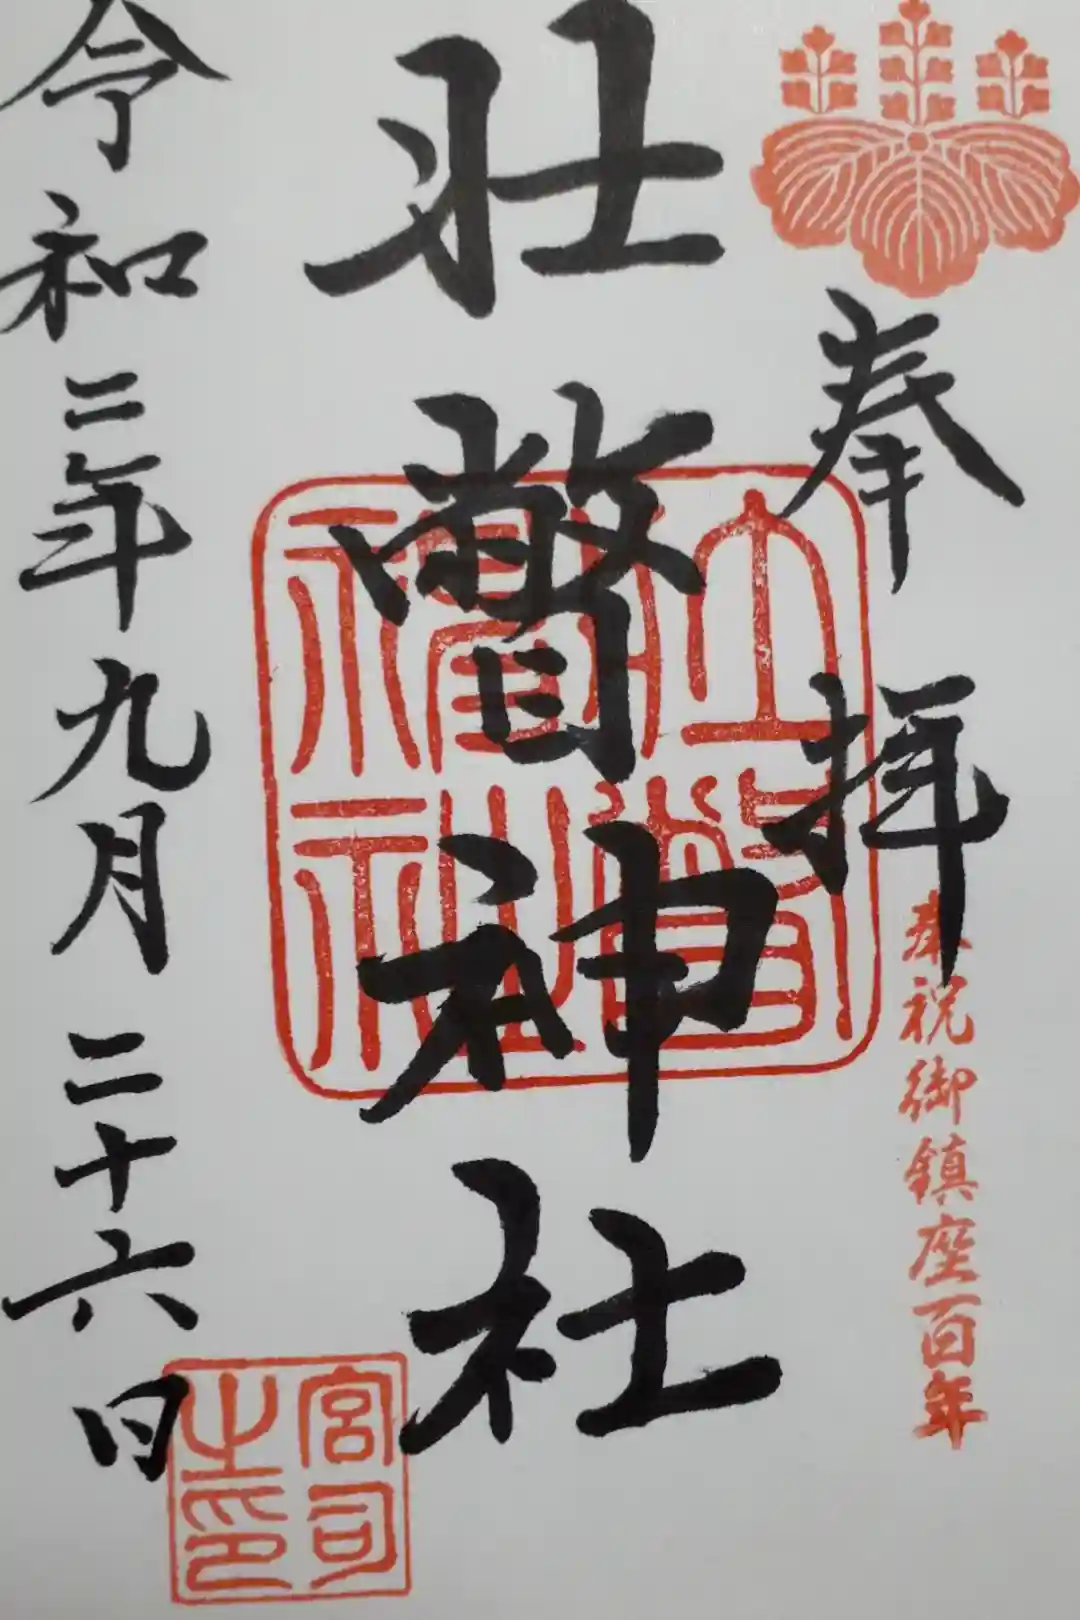 奉拝
奉祝御鎮座百年
壮瞥神社
令和二年九月二十六日
壮瞥神社
宮司之印